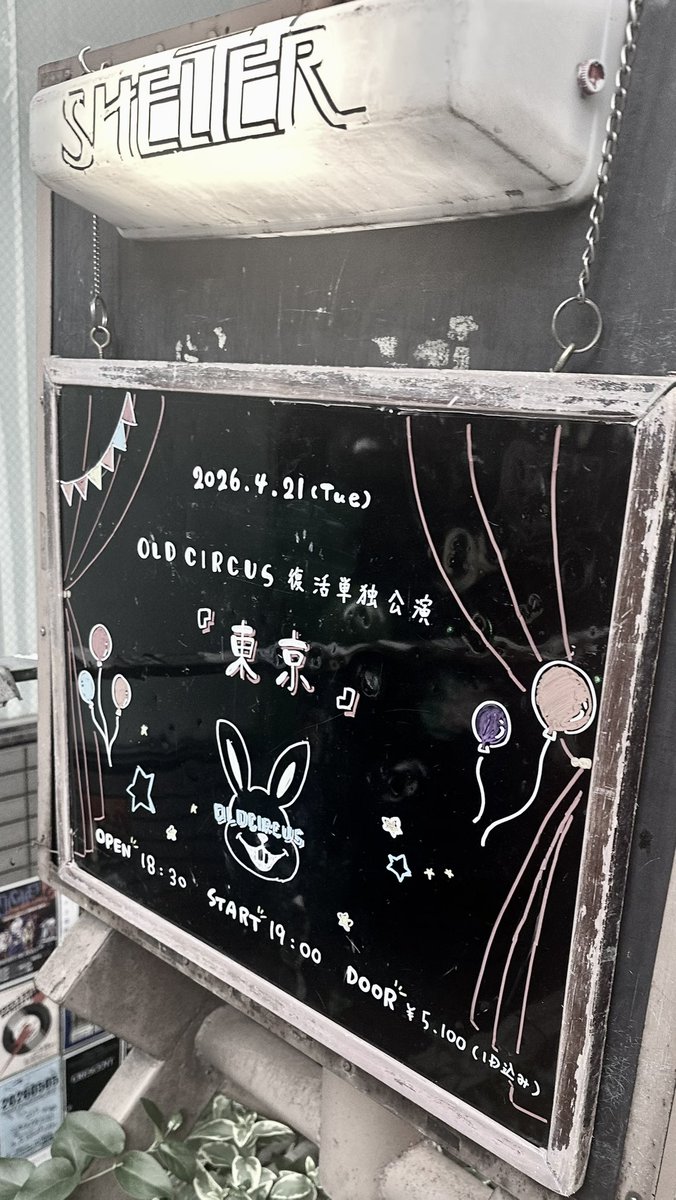 SHELTER
2026.4.21(Tue)
OLD CIRCUS 復活単独公演
『東京』
OLDCIRCUS
OPEN 18:30
START 19:00
DOOR ¥5.100(1D込み)
20260505